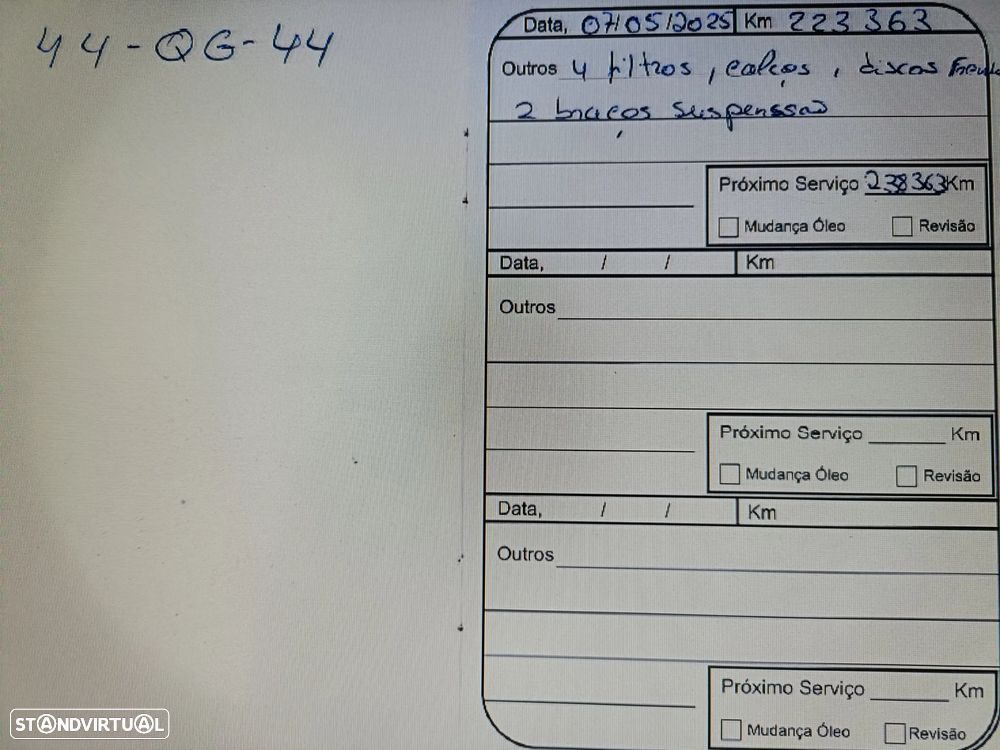 44-QG-44
Data, 07/05/2025 Km 223 363
Outros 4 filtros, calços, discos Frente
2 braços suspenssao
Próximo Serviço 238363 Km
Mudança Óleo Revisão
Data, / / Km
Outros
Próximo Serviço Km
Mudança Óleo Revisão
Data, / / Km
Outros
Próximo Serviço Km
Mudança Óleo Revisão
STANDVIRTUAL